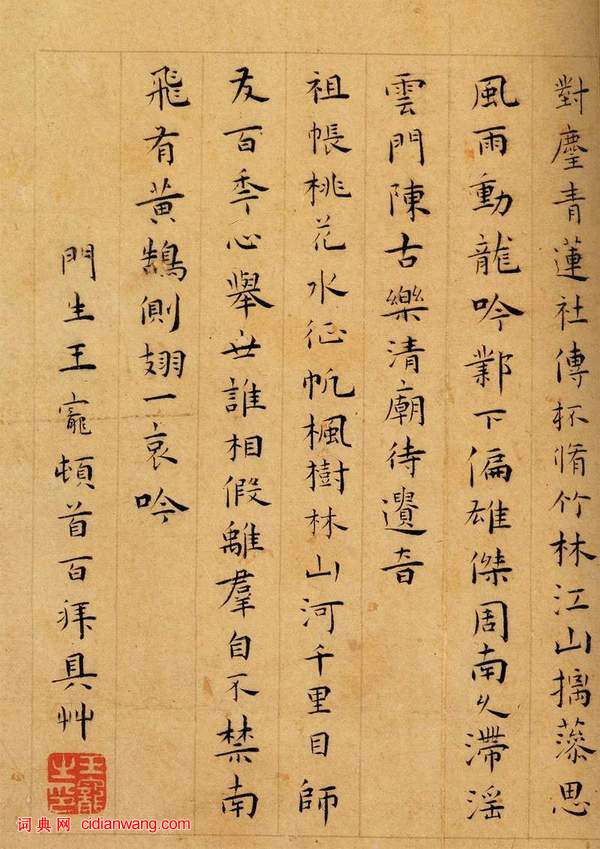 對麈青蓮社傳杯脩竹林江山摛藻思
風雨動龍吟鄴下偏雄傑周南久滯淫
雲門陳古樂清廟待遺音
祖帳桃花水征帆楓樹林山河千里目師
友百季心舉世誰相假離羣自不禁南
飛有黃鵠側翅一哀吟
門生王寵頓首百拜具艸
王寵之印
词典网 cidianwang.com